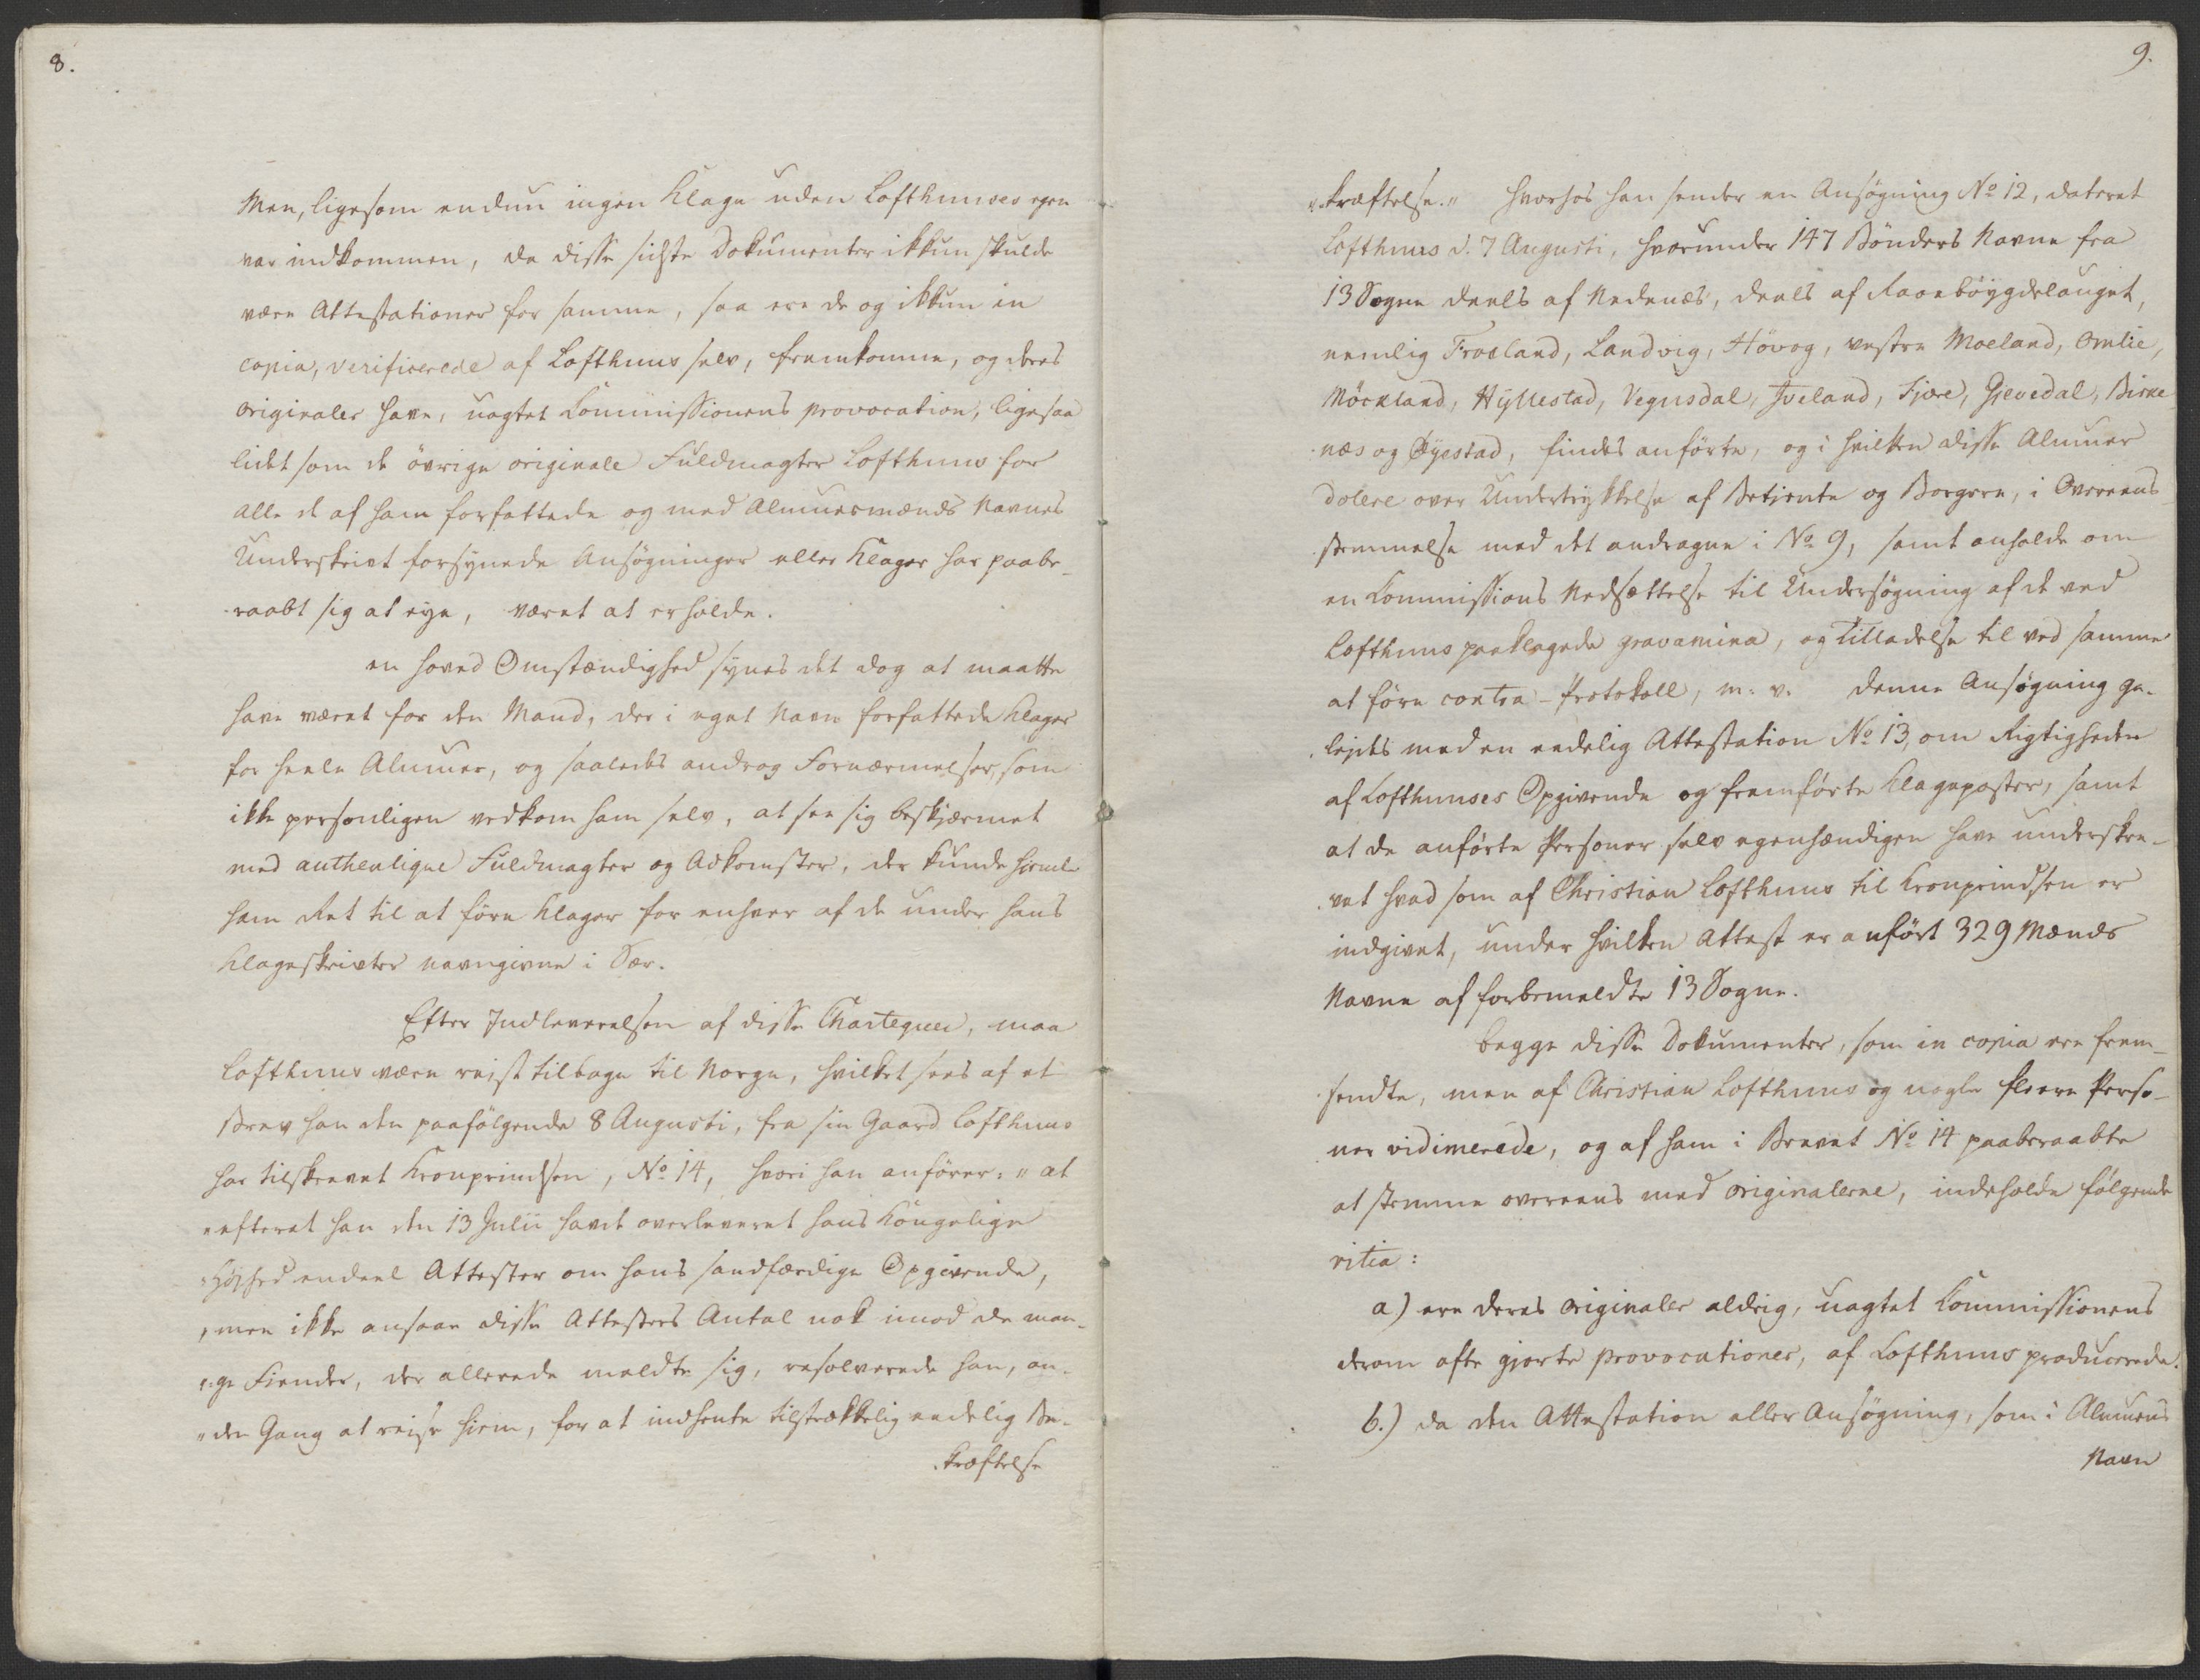 8.
Men, ligesom endnu ingen Klage uden Lofthuuses egen
var indkommen, da disse sidste Dokumenter ikkun skulde
være Attestationer for samme, saa ere de og ikkun in
copia, verificerede af Lofthuus selv, fremkomne, og deres
originaler have, uagtet Commissionens provocation, ligesaa
lidet som de övrige originale Fuldmagter Lofthuus for
alle de af ham forfattede og med Almuesmænds Navnes
Underskrivt forsynede Ansøgninger eller Klager har paabe-
raabt sig at eye, været at erholde.
en hoved Omstændighed synes det dog at maatte
have været for den Mand, der i eget Navn forfattede Klager
for heele Almuer, og saaledes androg Fornærmelser, som
ikke personligen vedkom ham selv, at see sig beskjærmet
med authentique Fuldmagter og Adkomster, der kunde hiemle
ham Ret til at före Klager for enhver af de under hans
Klageskrivter navngivne i Sær.
Efter Indleverelsen af disse Chartequer, maa
Lofthuus være reist tilbage til Norge, hvilket sees af et
Brev han den paafölgende 8 Augusti, fra sin Gaard Lofthuus
har tilskrevet Kronprindsen, No 14, hvori han anförer: "at
"efterat han den 13 Julii havde overleveret hans Kongelige
"Höjhed endeel Attester om hans sandfærdige Opgivende,
"men ikke ansaae disse Attesters Antal nok imod de man-
"ge Fiender, der allerede meldte sig, resolverede han, an-
"den Gang at reise hiem, for at indhente tilstrækkelig eedelig Be-
kræftelse
9.
"kræftelse." hvorhos han sender en Ansøgning No 12, dateret
Lofthuus d. 7 Augusti, hvorunder 147 Bönders Navne fra
13 Sogne deels af Nedenæs, deels af Raaböygdelauget,
nemlig Froeland, Landvig, Hövog, vestre Moeland, Omlie,
Möckland, Hyllestad, Vegusdal, Iveland, Fjære, Gjevedal, Birke
næs og Öyestad, findes anförte, og i hvilken disse Almuer
dolere over Undertrykkelse af Betiente og Borgere, i Overeens
stemmelse med det andragne i No 9, samt anholde om
en Commissions Nedsættelse til Undersögning af de ved
Lofthuus paaklagede gravamina, og Tilladelse til ved samme
at före contra-Protokoll, m. v. denne Ansøgning ge-
lejdes med en eedelig Attestation No 13, om Rigtigheden
af Lofthuuses Opgivende og fremförte Klageposter, samt
at de anförte Personer selv egenhændigen have underskre-
vet hvad som af Christian Lofthuus til Kronprindsen er
indgivet, under hvilken Attest er anfört 329 Mænds
Navne af forbemeldte 13 Sogne.
begge disse Dokumenter, som in copia ere frem-
sendte, men af Christian Lofthuus og nogle fleere Perso-
ner vidimerede, og af ham i Brevet No 14 paaberaabte
at stemme overeens med originalerne, indeholde fölgende
vitia:
a) ere deres originaler aldrig, uagtet Commissionens
derom ofte gjorte provocationer, af Lofthuus producerede.
b.) da den Attestation eller Ansøgning, som i Almuens
Navn